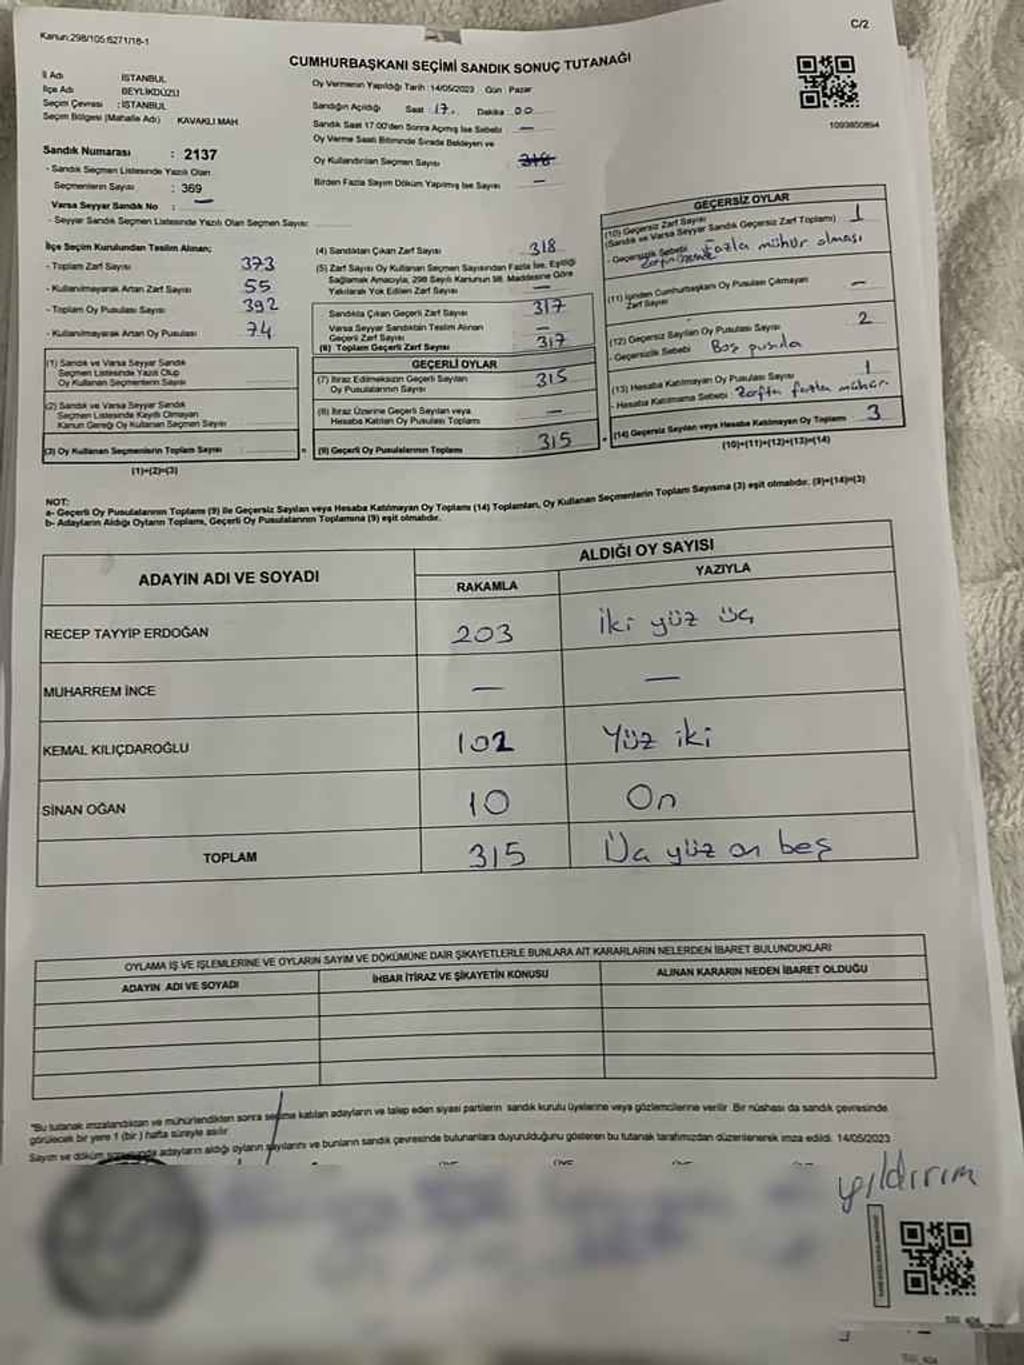 Kanun:298/105:6271/18-1
C/2
CUMHURBAŞKANI SEÇİMİ SANDIK SONUÇ TUTANAĞI
İl Adı : İSTANBUL
İlçe Adı BEYLİKDÜZÜ
Seçim Çevresi : İSTANBUL
Seçim Bölgesi (Mahalle Adı) : KAVAKLI MAH
Sandık Numarası : 2137
- Sandık Seçmen Listesinde Yazılı Olan
Seçmenlerin Sayısı : 369
Varsa Seyyar Sandık No : —
- Seyyar Sandık Seçmen Listesinde Yazılı Olan Seçmen Sayısı:
Oy Vermenin Yapıldığı Tarih :14/05/2023 Gün : Pazar
Sandığın Açıldığı Saat : 17. Dakika 00
Sandık Saat 17.00'den Sonra Açmış İse Sebebi —
Oy Verme Saati Bitiminde Sırada Bekleyen ve
Oy Kullandırılan Seçmen Sayısı 318
Birden Fazla Sayım Döküm Yapılmış İse Sayısı —
1093850894
İlçe Seçim Kurulundan Teslim Alınan;
- Toplam Zarf Sayısı 373
- Kullanılmayarak Artan Zarf Sayısı 55
- Toplam Oy Pusulası Sayısı 392
- Kullanılmayarak Artan Oy Pusulası 74
(1) Sandık ve Varsa Seyyar Sandık
Seçmen Listesinde Yazılı Olup
Oy Kullanan Seçmenlerin Sayısı
(2) Sandık ve Varsa Seyyar Sandık
Seçmen Listesinde Kaydı Olmayan
Kanun Gereği Oy Kullanan Seçmen Sayısı
(3) Oy Kullanan Seçmenlerin Toplam Sayısı
(1)+(2)=(3)
(4) Sandıktan Çıkan Zarf Sayısı 318
(5) Zarf Sayısı Oy Kullanan Seçmen Sayısından Fazla İse, Eşitliği
Sağlamak Amacıyla, 298 Sayılı Kanunun 98. Maddesine Göre
Yakılarak Yok Edilen Zarf Sayısı —
Sandıkla Çıkan Geçerli Zarf Sayısı 317
Varsa Seyyar Sandıktan Teslim Alınan
Geçerli Zarf Sayısı —
(6) Toplam Geçerli Zarf Sayısı 317
GEÇERLİ OYLAR
(7) İtiraz Edilmeksizin Geçerli Sayılan
Oy Pusulalarının Sayısı 315
(8) İtiraz Üzerine Geçerli Sayılan veya
Hesaba Katılan Oy Pusulası Toplamı —
(9) Geçerli Oy Pusulalarının Toplamı : 315
GEÇERSİZ OYLAR
(10) Geçersiz Zarf Sayısı
(Sandık ve Varsa Seyyar Sandık Geçersiz Zarf Toplamı) 1
- Geçersizlik Sebebi: Zarfın üzerinde Fazla mühür olması
(11) İçinden Cumhurbaşkanı Oy Pusulası Çıkmayan
Zarf Sayısı —
(12) Geçersiz Sayılan Oy Pusulası Sayısı 2
- Geçersizlik Sebebi Boş pusula
(13) Hesaba Katılmayan Oy Pusulası Sayısı 1
- Hesaba Katılmama Sebebi : Zarfta fazla mühür.
(14) Geçersiz Sayılan veya Hesaba Katılmayan Oy Toplamı 3
(10)+(11)+(12)+(13)=(14)
NOT:
a- Geçerli Oy Pusulalarının Toplamı (9) ile Geçersiz Sayılan veya Hesaba Katılmayan Oy Toplamı (14) Toplamları, Oy Kullanan Seçmenlerin Toplam Sayısına (3) eşit olmalıdır. (9)+(14)=(3)
b- Adayların Aldığı Oyların Toplamı, Geçerli Oy Pusulalarının Toplamına (9) eşit olmalıdır.
ADAYIN ADI VE SOYADI
ALDIĞI OY SAYISI
RAKAMLA YAZIYLA
RECEP TAYYİP ERDOĞAN 203 İki yüz üç
MUHARREM İNCE — —
KEMAL KILIÇDAROĞLU 102 Yüz iki
SİNAN OĞAN 10 On
TOPLAM 315 Üç yüz on beş
OYLAMA İŞ VE İŞLEMLERİNE VE OYLARIN SAYIM VE DÖKÜMÜNE DAİR ŞİKAYETLERLE BUNLARA AİT KARARLARIN NELERDEN İBARET BULUNDUKLARI
ADAYIN ADI VE SOYADI İHBAR İTİRAZ VE ŞİKAYETİN KONUSU ALINAN KARARIN NEDEN İBARET OLDUĞU
"Bu tutanak imzalandıktan ve mühürlendikten sonra seçime katılan adayların ve talep eden siyasi partilerin sandık kurulu üyelerine veya gözlemcilerine verilir. Bir nüshası da sandık çevresinde
görülecek bir yere 1 (bir) hafta süreyle asılır.
Sayım ve döküm sonucunda adayların aldığı oyların sayılarını ve bunların sandık çevresinde bulunanlara duyurulduğunu gösteren bu tutanak tarafımızdan düzenlenerek imza edildi. 14/05/2023
yıldırım